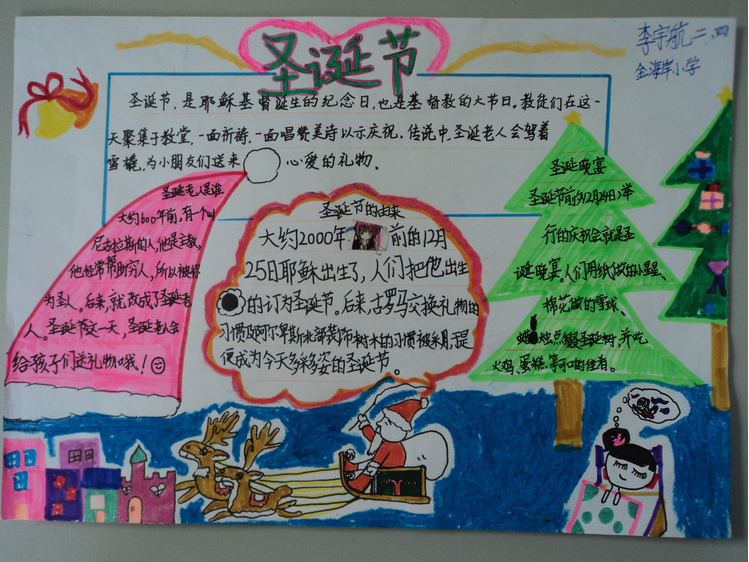 圣诞节
李宇航二.四
金海岸小学
圣诞节,是耶稣基督诞生的纪念日,也是基督教的大节日。教徒们在这一
天聚集于教堂,一面祈祷,一面唱赞美诗以示庆祝.传说中,圣诞老人会驾着
雪橇,为小朋友们送来 心爱的礼物.
圣诞老人是谁
大约1600年前,有一个叫
尼古拉斯的人,他是主教,
他经常帮助穷人,所以被称
为圣人。后来,就改成了圣诞老
人。圣诞节这一天,圣诞老人会
给孩子们送礼物哦!
圣诞节的由来
大约2000年前的12月
25日耶稣出生了,人们把他出生
的订为圣诞节。后来,古罗马交换礼物的
习惯及阿尔卑斯北部装饰树木的习惯被采用,于是
便成为今天多彩多姿的圣诞节。
圣诞晚宴
圣诞节前夕(12月24日)举
行的庆祝会就是圣
诞晚宴。人们用纸做的小星星、
棉花做的雪球、
蜡烛点缀圣诞树,并吃
火鸡,蛋糕,等可口的佳肴。